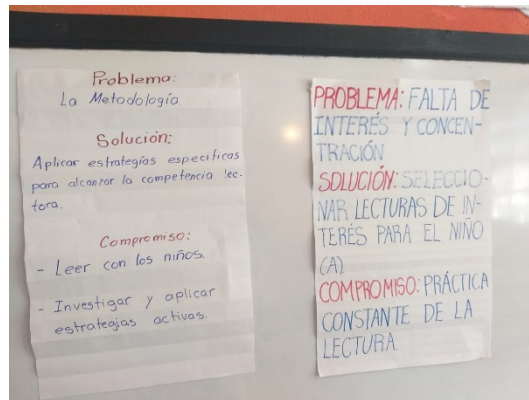 Problema:
La Metodología
Solución:
Aplicar estrategías especificas
para alcanzar la competencia lec-
tora.
Compromiso:
- Leer con los niños.
- Investigar y aplicar
estrategias activas.
PROBLEMA: FALTA DE
INTERÉS Y CONCEN-
TRACIÓN
SOLUCIÓN: SELECCIO-
NAR LECTURAS DE IN-
TERÉS PARA EL NIÑO
(A).
COMPROMISO: PRÁCTICA
CONSTANTE DE LA
LECTURA.